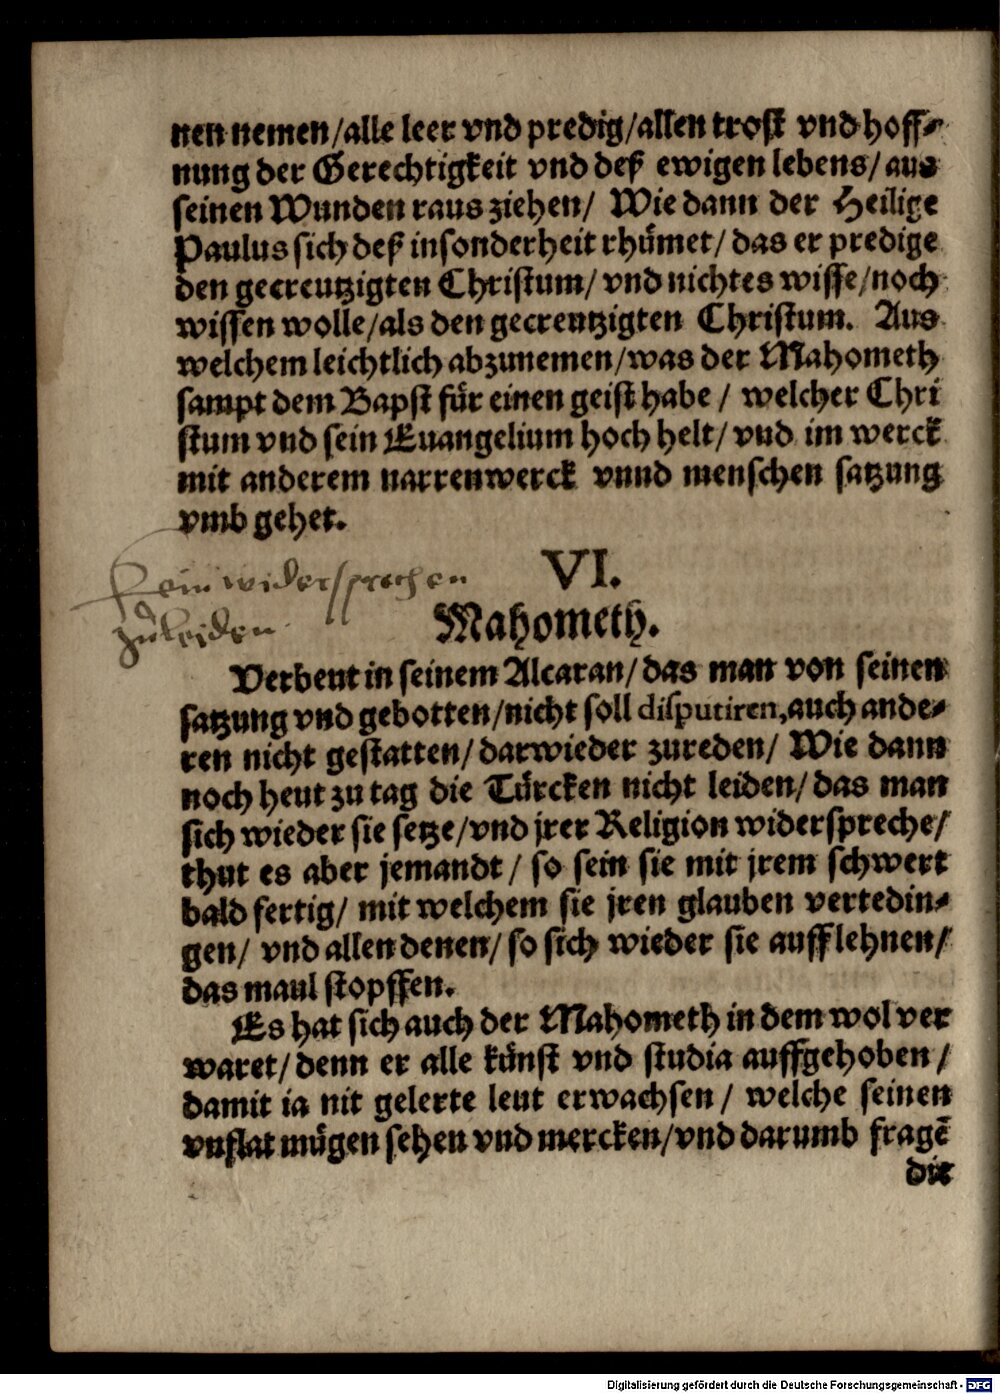 nen nemen/alle leer vnd predig/allen trost vnd hoff⸗
nung der Gerechtigkeit vnd deß ewigen lebens/ aus
seinen Wunden raus ziehen/ Wie dann der Heilige
Paulus sich deß insonderheit rhuͤmet/ das er predige
den gecreutzigten Christum/ vnd nichtes wisse/noch
wissen wolle/als den gecreutzigten Christum. Aus
welchem leichtlich abzunemen/was der Mahometh
sampt dem Bapst fuͤr einen geist habe / welcher Chri
stum vnd sein Euangelium hoch helt/ vnd im werck
mit anderem narrenwerck vnnd menschen satzung
vmb gehet.
VI.
Kein widersprechen
zůleiden
Mahometh.
Verbeut in seinem Alcaran/ das man von seinen
satzung vnd gebotten/nicht soll disputiren,auch ande⸗
ren nicht gestatten/ darwieder zureden/ Wie dann
noch heut zu tag die Tuͤrcken nicht leiden/ das man
sich wieder sie setze/vnd jrer Religion widerspreche/
thut es aber jemandt / so sein sie mit jrem schwert
bald fertig/ mit welchem sie jren glauben vertedin⸗
gen/ vnd allen denen/ so sich wieder sie aufflehnen/
das maul stopffen.
Es hat sich auch der Mahometh in dem wol ver
waret/ denn er alle kuͤnst vnd studia auffgehoben /
damit ia nit gelerte leut erwachsen / welche seinen
vnflat muͤgen sehen vnd mercken/vnd darumb fragē
die
Digitalisierung gefördert durch die Deutsche Forschungsgemeinschaft - DFG